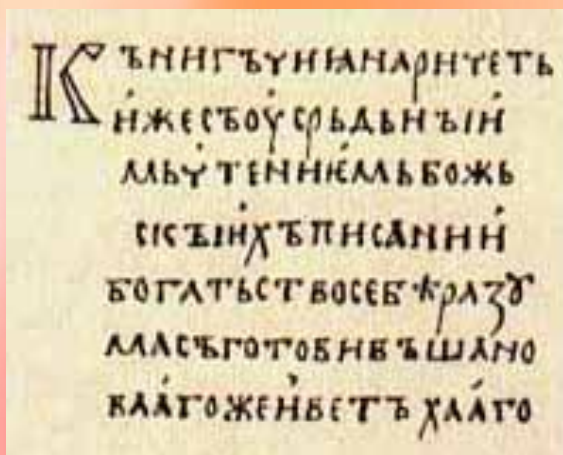 Кънигъчиꙗнаричеть
и́жесъѹ́срьдьнъіи́
мьч́тениѥ́мьбожь
сксъіи́хъписании́
богатьствосебѣразꙋ
масъготови́въшано
ваа́гожеи́ветъхаа́го